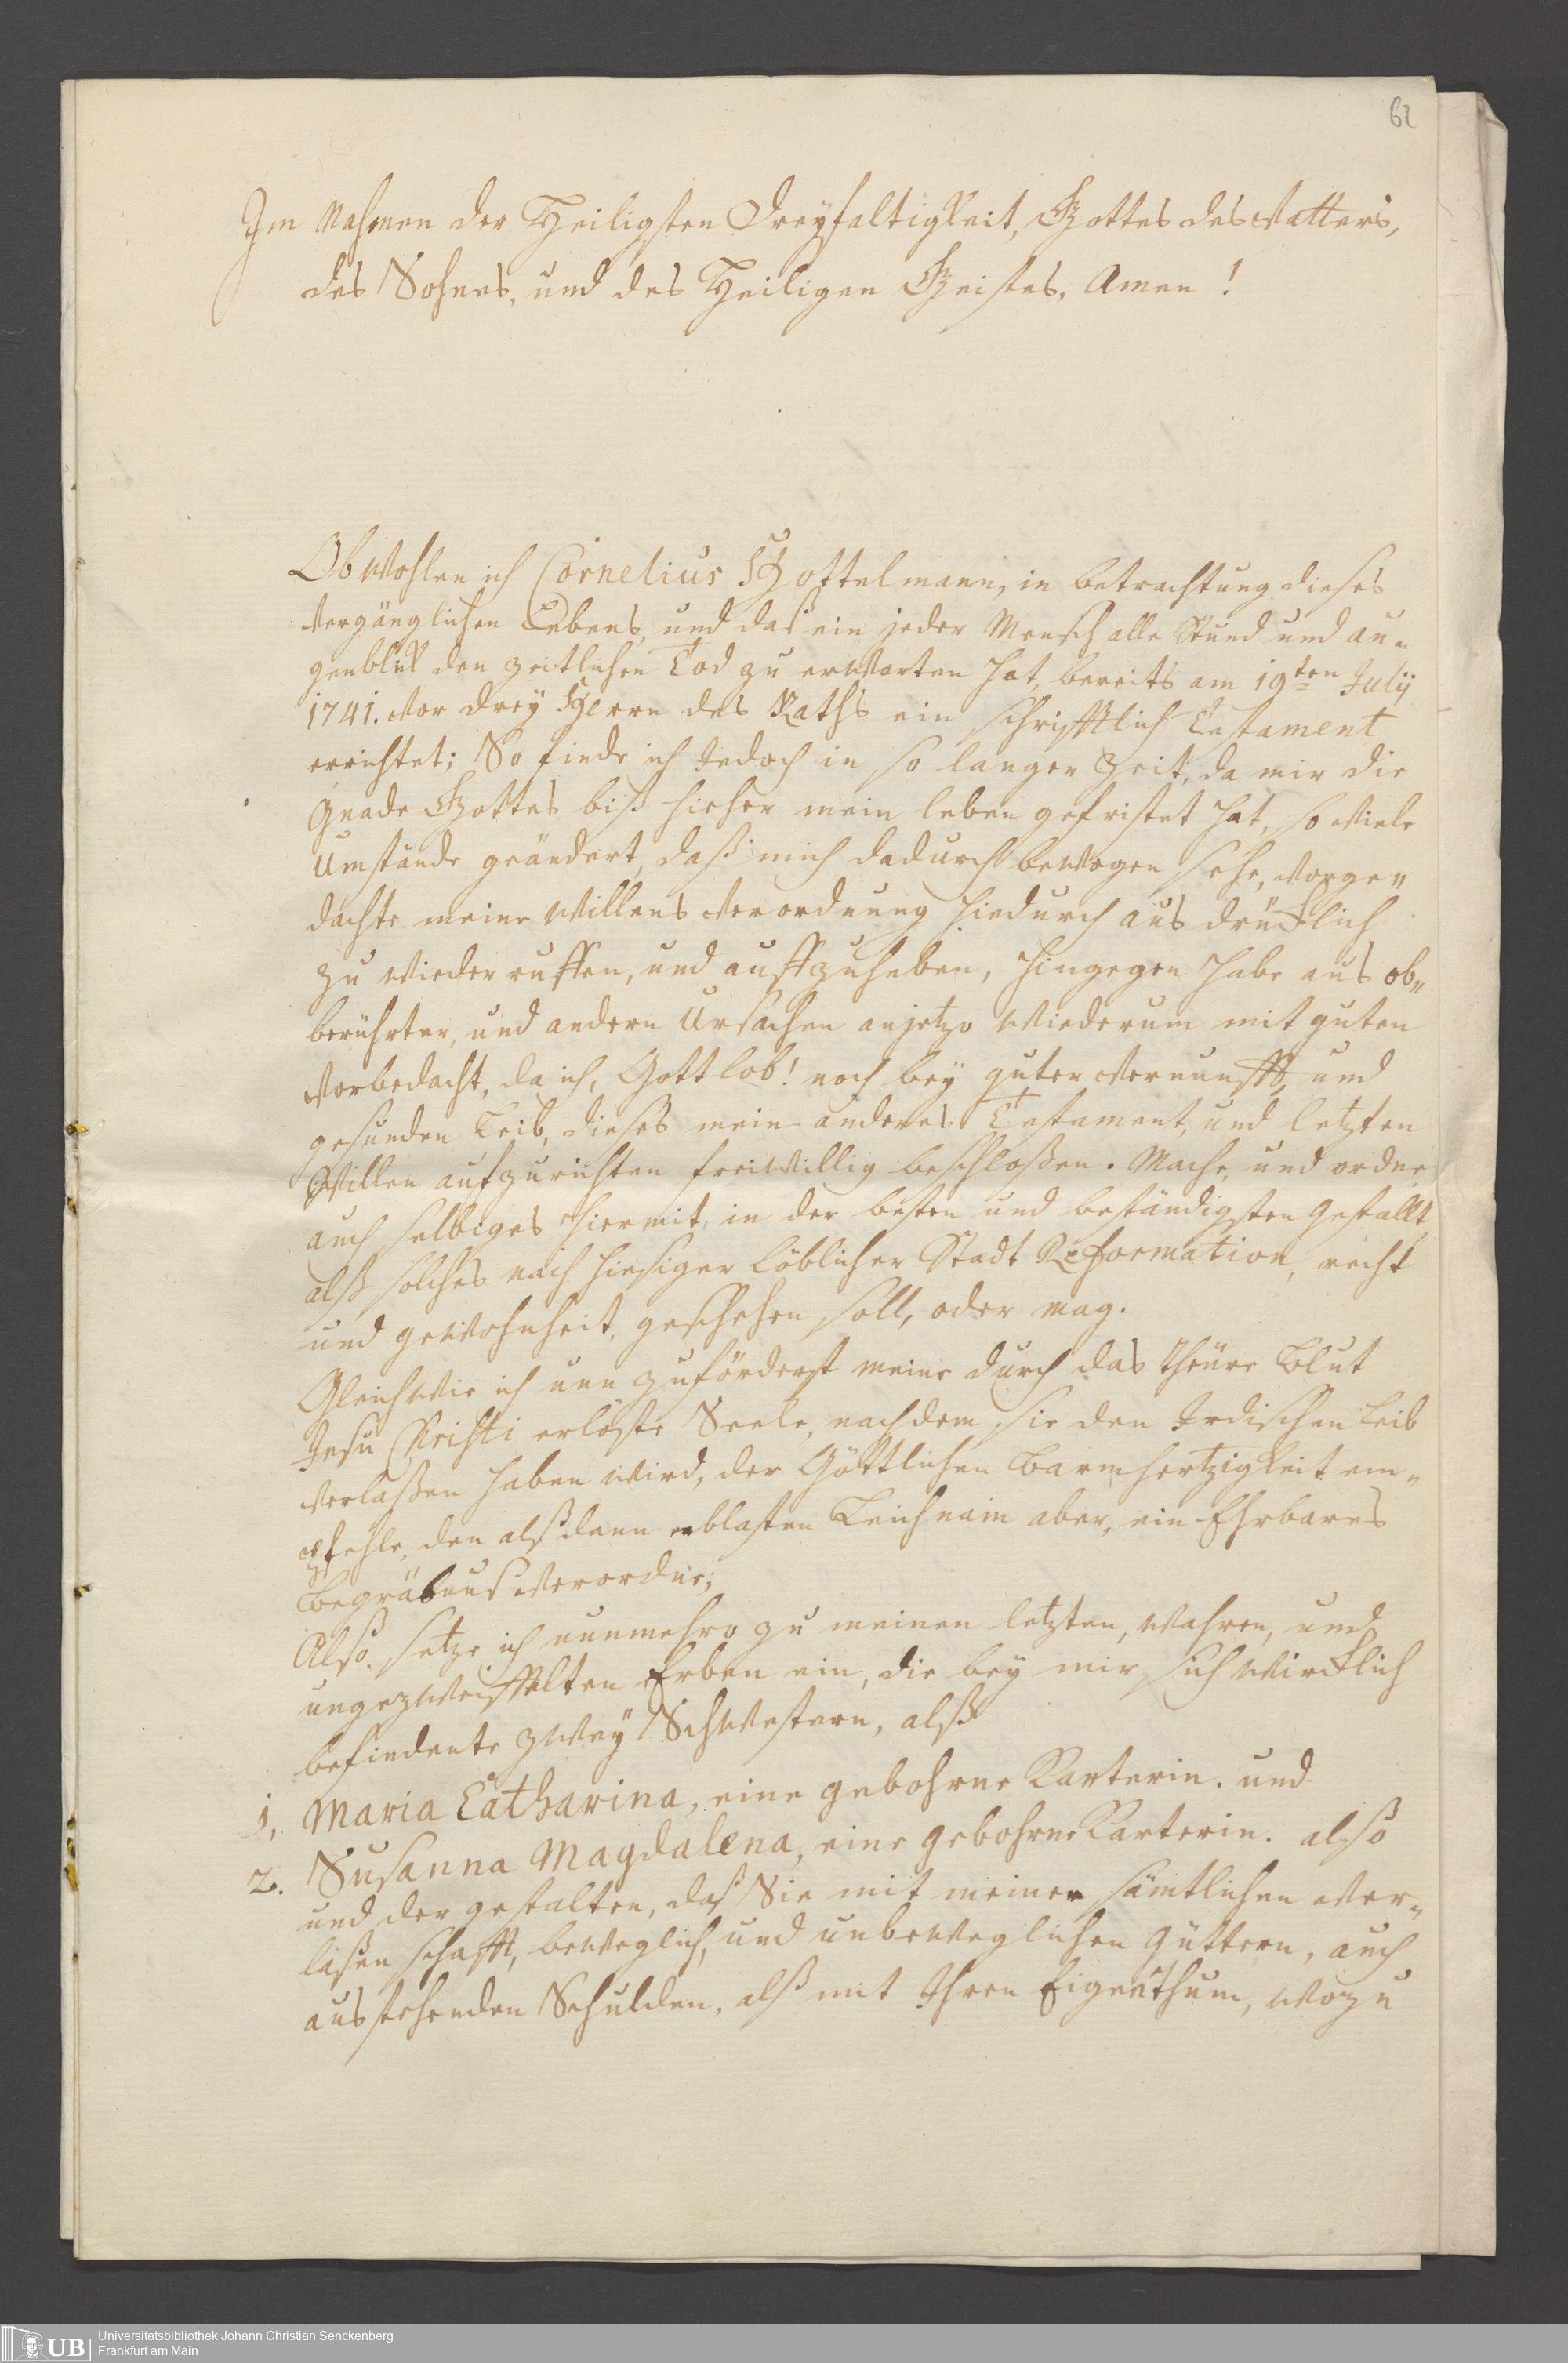 62
Im Nahmen der Heiligsten Dreyfaltigkeit, Gottes des Vatters,
des Sohnes, und des Heiligen Geistes, Amen!
Obwohlen ich Cornelius Gottelmann, in betrachtung dieses
vergänglichen Lebens, und das ein jeder Mensch alle Stund und au-
genblik den zeitlichen Tod zu erwarten hat, bereits am 19ten Julij
1741. vor drey Herrn des Raths ein schrifftlich Testament
errichtet; So finde ich Jedoch in so langer Zeit, da mir die
Gnade Gottes biß hieher mein leben gefristet hat, so viele
Umstände geändert, daß mich dadurch bewogen sehe, vorge„
dachte meine Willens verordnung hiedurch aus drücklich
zu wiederruffen, und auffzuheben, hingegen habe aus ob„
berührter, und andern Ursachen anjetzo wiederum mit guten
Vorbedacht, da ich, Gott lob! noch bey guter vernunfft, und
gesunden Leib, dieses mein anderes Testament, und letzten
Willen aufzurichten freiwillig beschloßen. Mache, und ordne
auch selbiges hiermit, in der besten und beständigsten Gestallt,
alß solches nach hiesiger löblicher Stadt Reformation, recht
und gewohnheit, geschehen soll, oder mag.
Gleichwie ich nun zuförderst meine durch das theure Blut
Jesu Christi erlöste Seele, nachdem sie den Irdischen Leib
verlaßen haben wird, der Göttlichen Barmhertzigkeit em-
pfehle, den alßdann erblasten Leichnam aber, ein Ehrbares
Begräbnus verordne;
Also setze ich nunmehro zu meinen letzten, wahren, und
ungezweiffelten Erben ein, die bey mir sich wircklich
befindente zwey Schwestern, alß
1, Maria Catharina, eine gebohrne Karterin. und
2. Susanna Magdalena, eine gebohrne Karterin. also
und der gestalten, daß Sie mit meiner sämtlichen ver-
laßenschafft, beweglich, und unbeweglichen Güttern, auch
ausstehenden Schulden, alß mit Ihren Eigenthum, wozu
UB Universitätsbibliothek Johann Christian Senckenberg
Frankfurt am Main